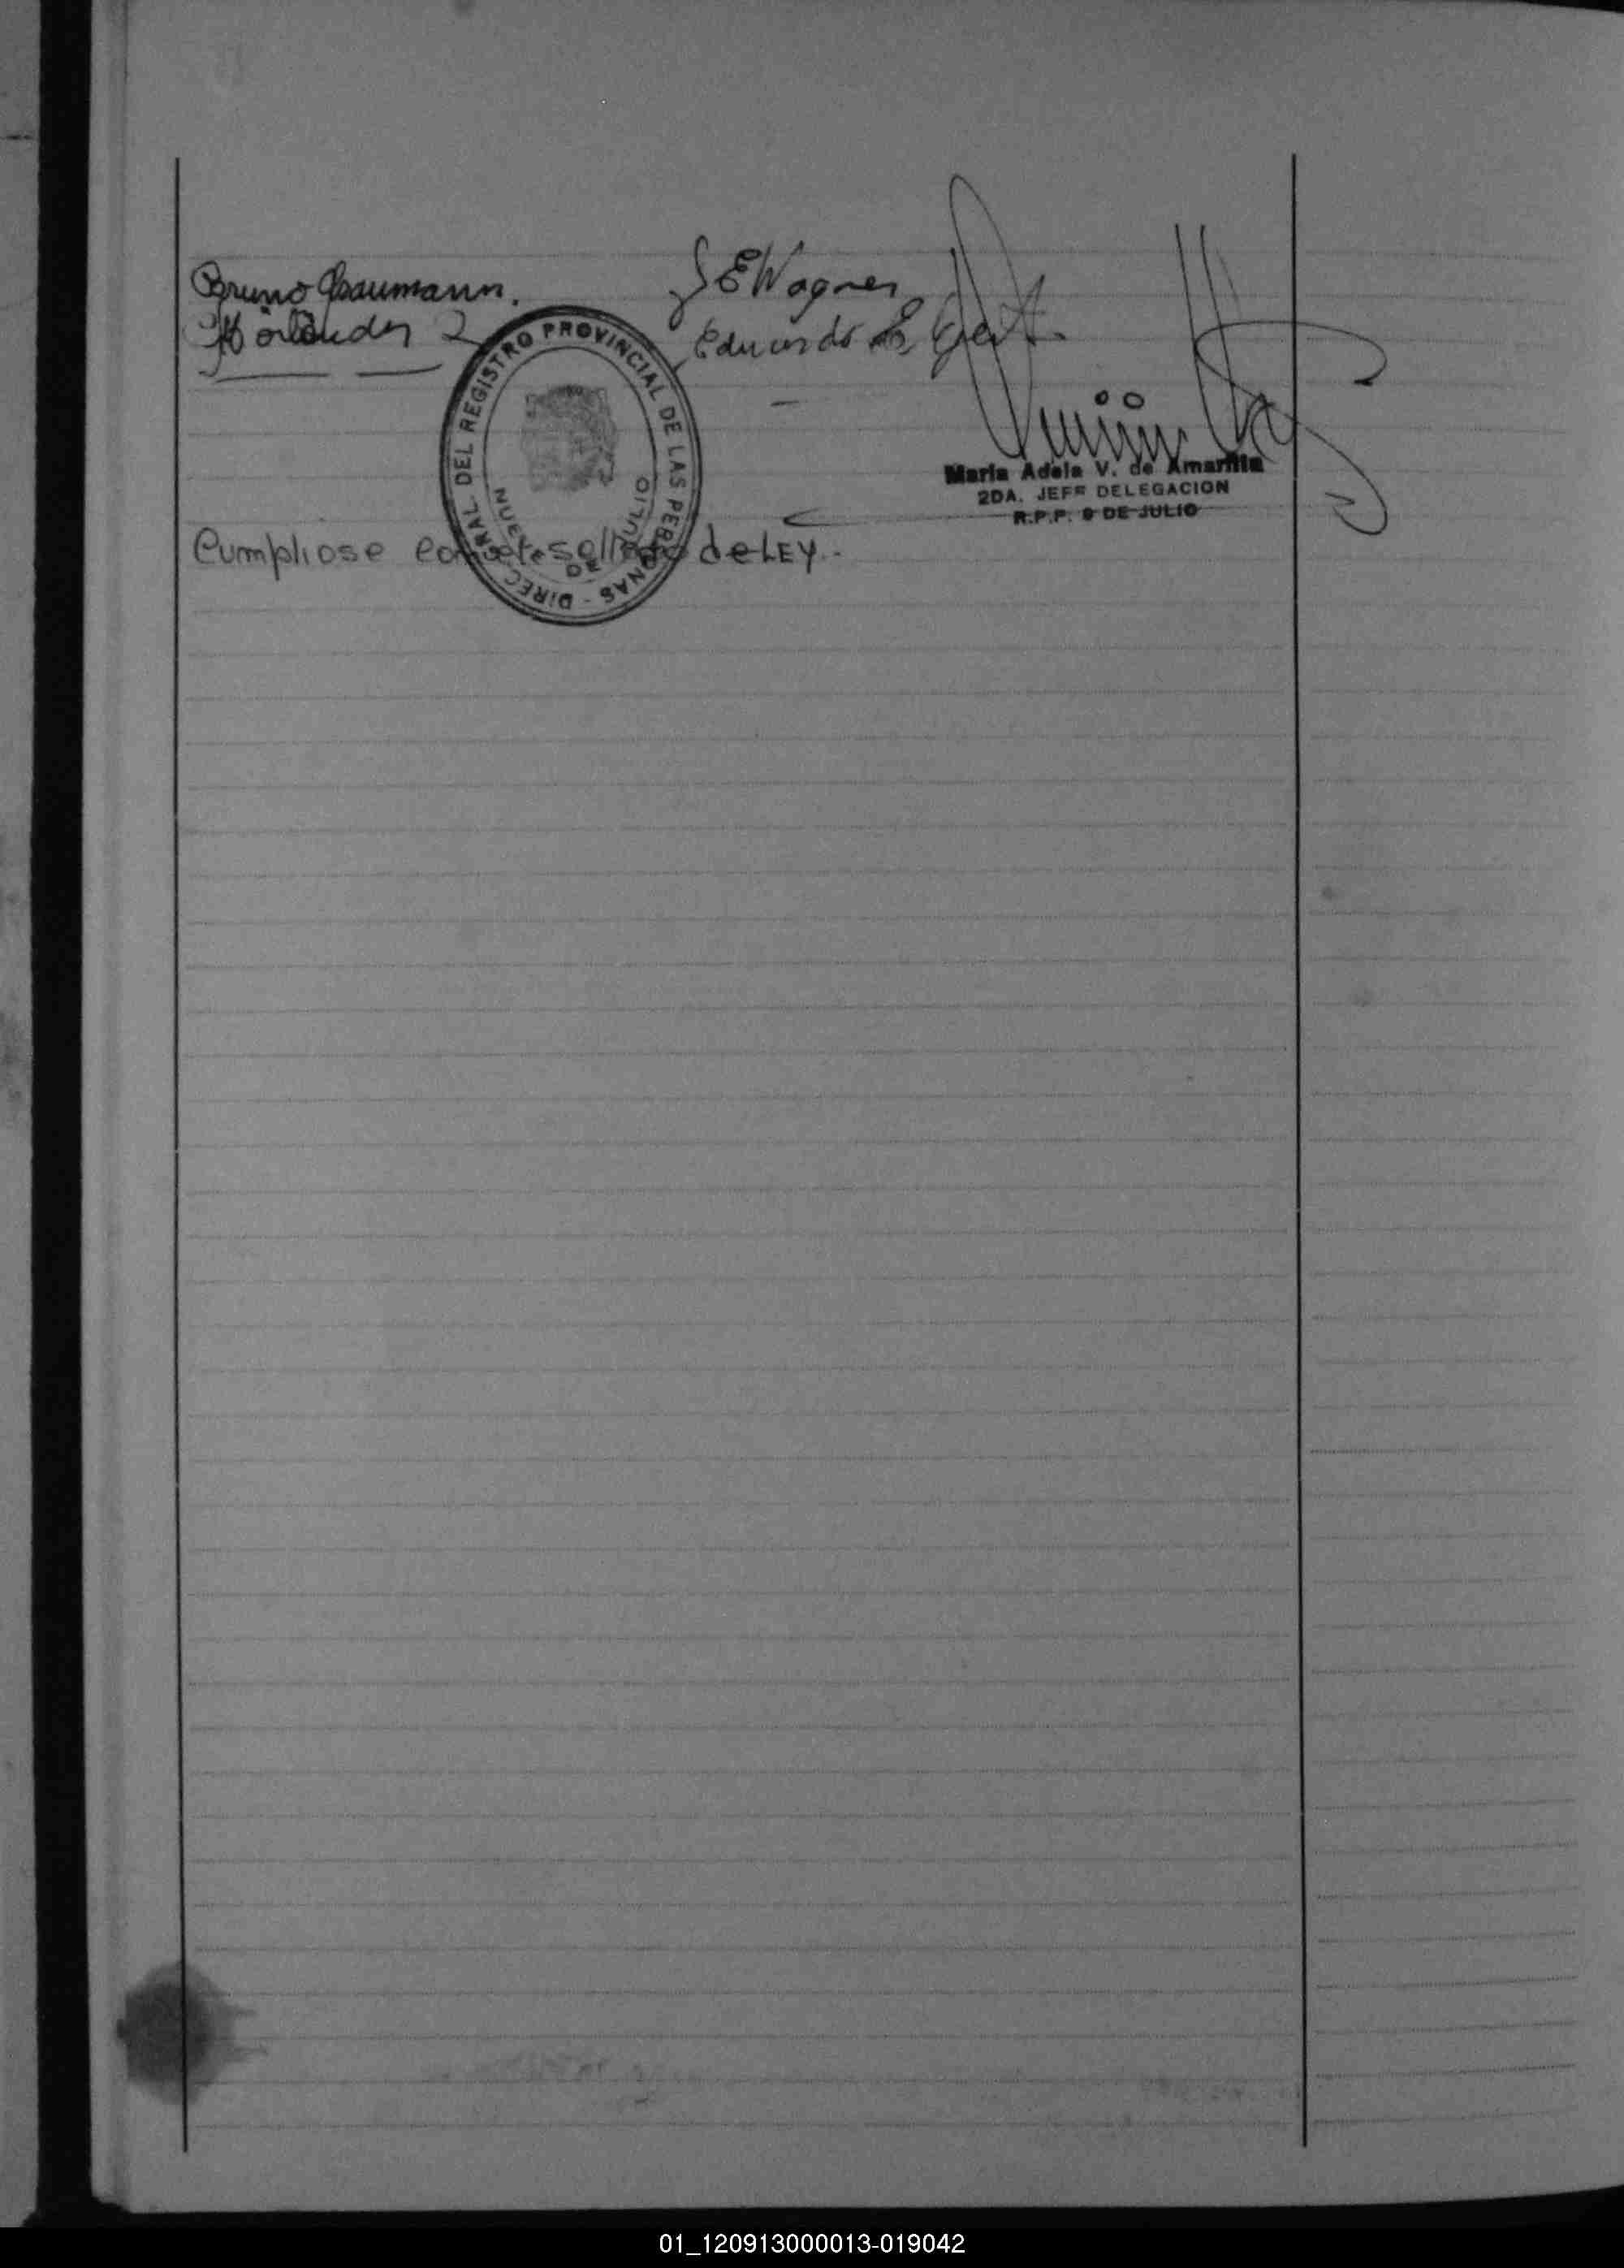 Bruno Baumann.
J E Wagner
Eduardo
DIREC. GRAL. DEL REGISTRO PROVINCIAL DE LAS PERSONAS -
NUEVE DE JULIO
Maria Adela V. de Amarilla
2DA. JEFE DELEGACION
R.P.P. 9 DE JULIO
Cumpliose con el sellado de LEY.-
01_120913000013-019042